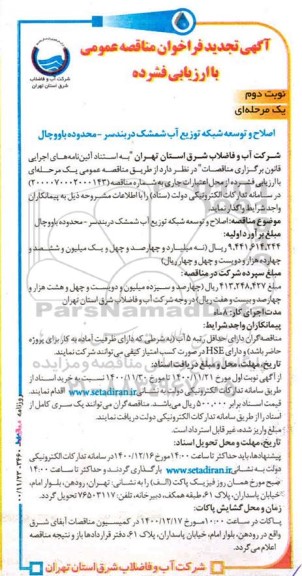 آگهی تجدید فراخوان مناقصه عمومی
با ارزیابی فشرده
شرکت آب و فاضلاب
شرق استان تهران
نوبت دوم
یک مرحله‌ای
اصلاح و توسعه شبکه توزیع آب شمشک دربندسر - محدوده باووچال
شرکت آب و فاضلاب شرق استان تهران "به استناد آئین‌نامه‌های اجرایی
قانون برگزاری مناقصات" در نظر دارد از طریق مناقصه عمومی یک مرحله‌ای
با ارزیابی فشرده از محل اعتبارات جاری به شماره مناقصه (۲۰۰۰۰۷۰۰۰۲۰۰۰۱۴۳)
در سامانه تدارکات الکترونیکی دولت (ستاد) را با اطلاعات مشروحه ذیل به پیمانکاران
واجد شرایط واگذار نماید.
موضوع مناقصه: اصلاح و توسعه شبکه توزیع آب شمشک دربندسر - محدوده باووچال
مبلغ برآورد اولیه:
۹,۴۴۱,۶۱۴,۲۴۴ ریال (نه میلیارد و چهارصد و چهل و یک میلیون و ششصد و
چهارده هزار و دویست و چهل و چهار ریال)
مبلغ سپرده شرکت در مناقصه:
مبلغ ۴۱۳,۲۴۸,۴۲۷ ریال (چهارصد و سیزده میلیون و دویست و چهل و هشت هزار و
چهارصد و بیست و هفت ریال) در وجه شرکت آب و فاضلاب شرق استان تهران
مدت اجرای کار: ۸ ماه
پیمانکاران واجد شرایط:
مناقصه‌گران دارای حداقل رتبه ۵ آب (به شرطی که دارای ظرفیت آماده به کار برای پروژه
حاضر باشند) و دارای HSE در صورت کسب امتیاز کیفی می‌توانند شرکت نمایند.
تاریخ، مهلت، محل و مبلغ دریافت اسناد:
از آگهی نوبت اول مورخ ۱۴۰۰/۱۱/۲۱ تا مورخ ۱۴۰۰/۱۱/۳۰ نسبت به خرید اسناد از
طریق سامانه تدارکات الکترونیکی دولت به نشانی www.setadiran.ir اقدام نمایند.
قیمت اسناد برابر ۵۰۰,۰۰۰ ریال می‌باشد. مناقصه‌گران می‌توانند یک سری کامل از
اسناد را از طریق سامانه تدارکات الکترونیکی دولت دریافت نمایند.
مبلغ واریز شده، غیر قابل استرداد است.
تاریخ، مهلت و محل تحویل اسناد:
پیشنهادها باید حداکثر تا ساعت ۱۴:۰۰ مورخ ۱۴۰۰/۱۲/۱۶ در سامانه تدارکات الکترونیکی
دولت به نشانی www.setadiran.ir بارگذاری گردند و حداکثر تا ساعت ۱۴:۰۰
صبح مورخ همان روز فیزیک پاکت (الف) را به نشانی: تهران، رودهن، بلوار امام،
خیابان پاسداران، پلاک ۶۱، طبقه همکف، دبیرخانه، تلفن: ۷۶۵۰۳۱۱۷ تحویل گردد.
زمان و محل گشایش پاکات:
پاکات در ساعت ۱۰:۰۰ مورخ ۱۴۰۰/۱۲/۱۷ در کمیسیون مناقصات آبفای شرق
واقع در رودهن، بلوار امام، خیابان پاسداران، پلاک ۶۱، دفتر قراردادها باز و نتیجه مناقصه
اعلام می‌گردد.
شرکت آب و فاضلاب شرق استان تهران